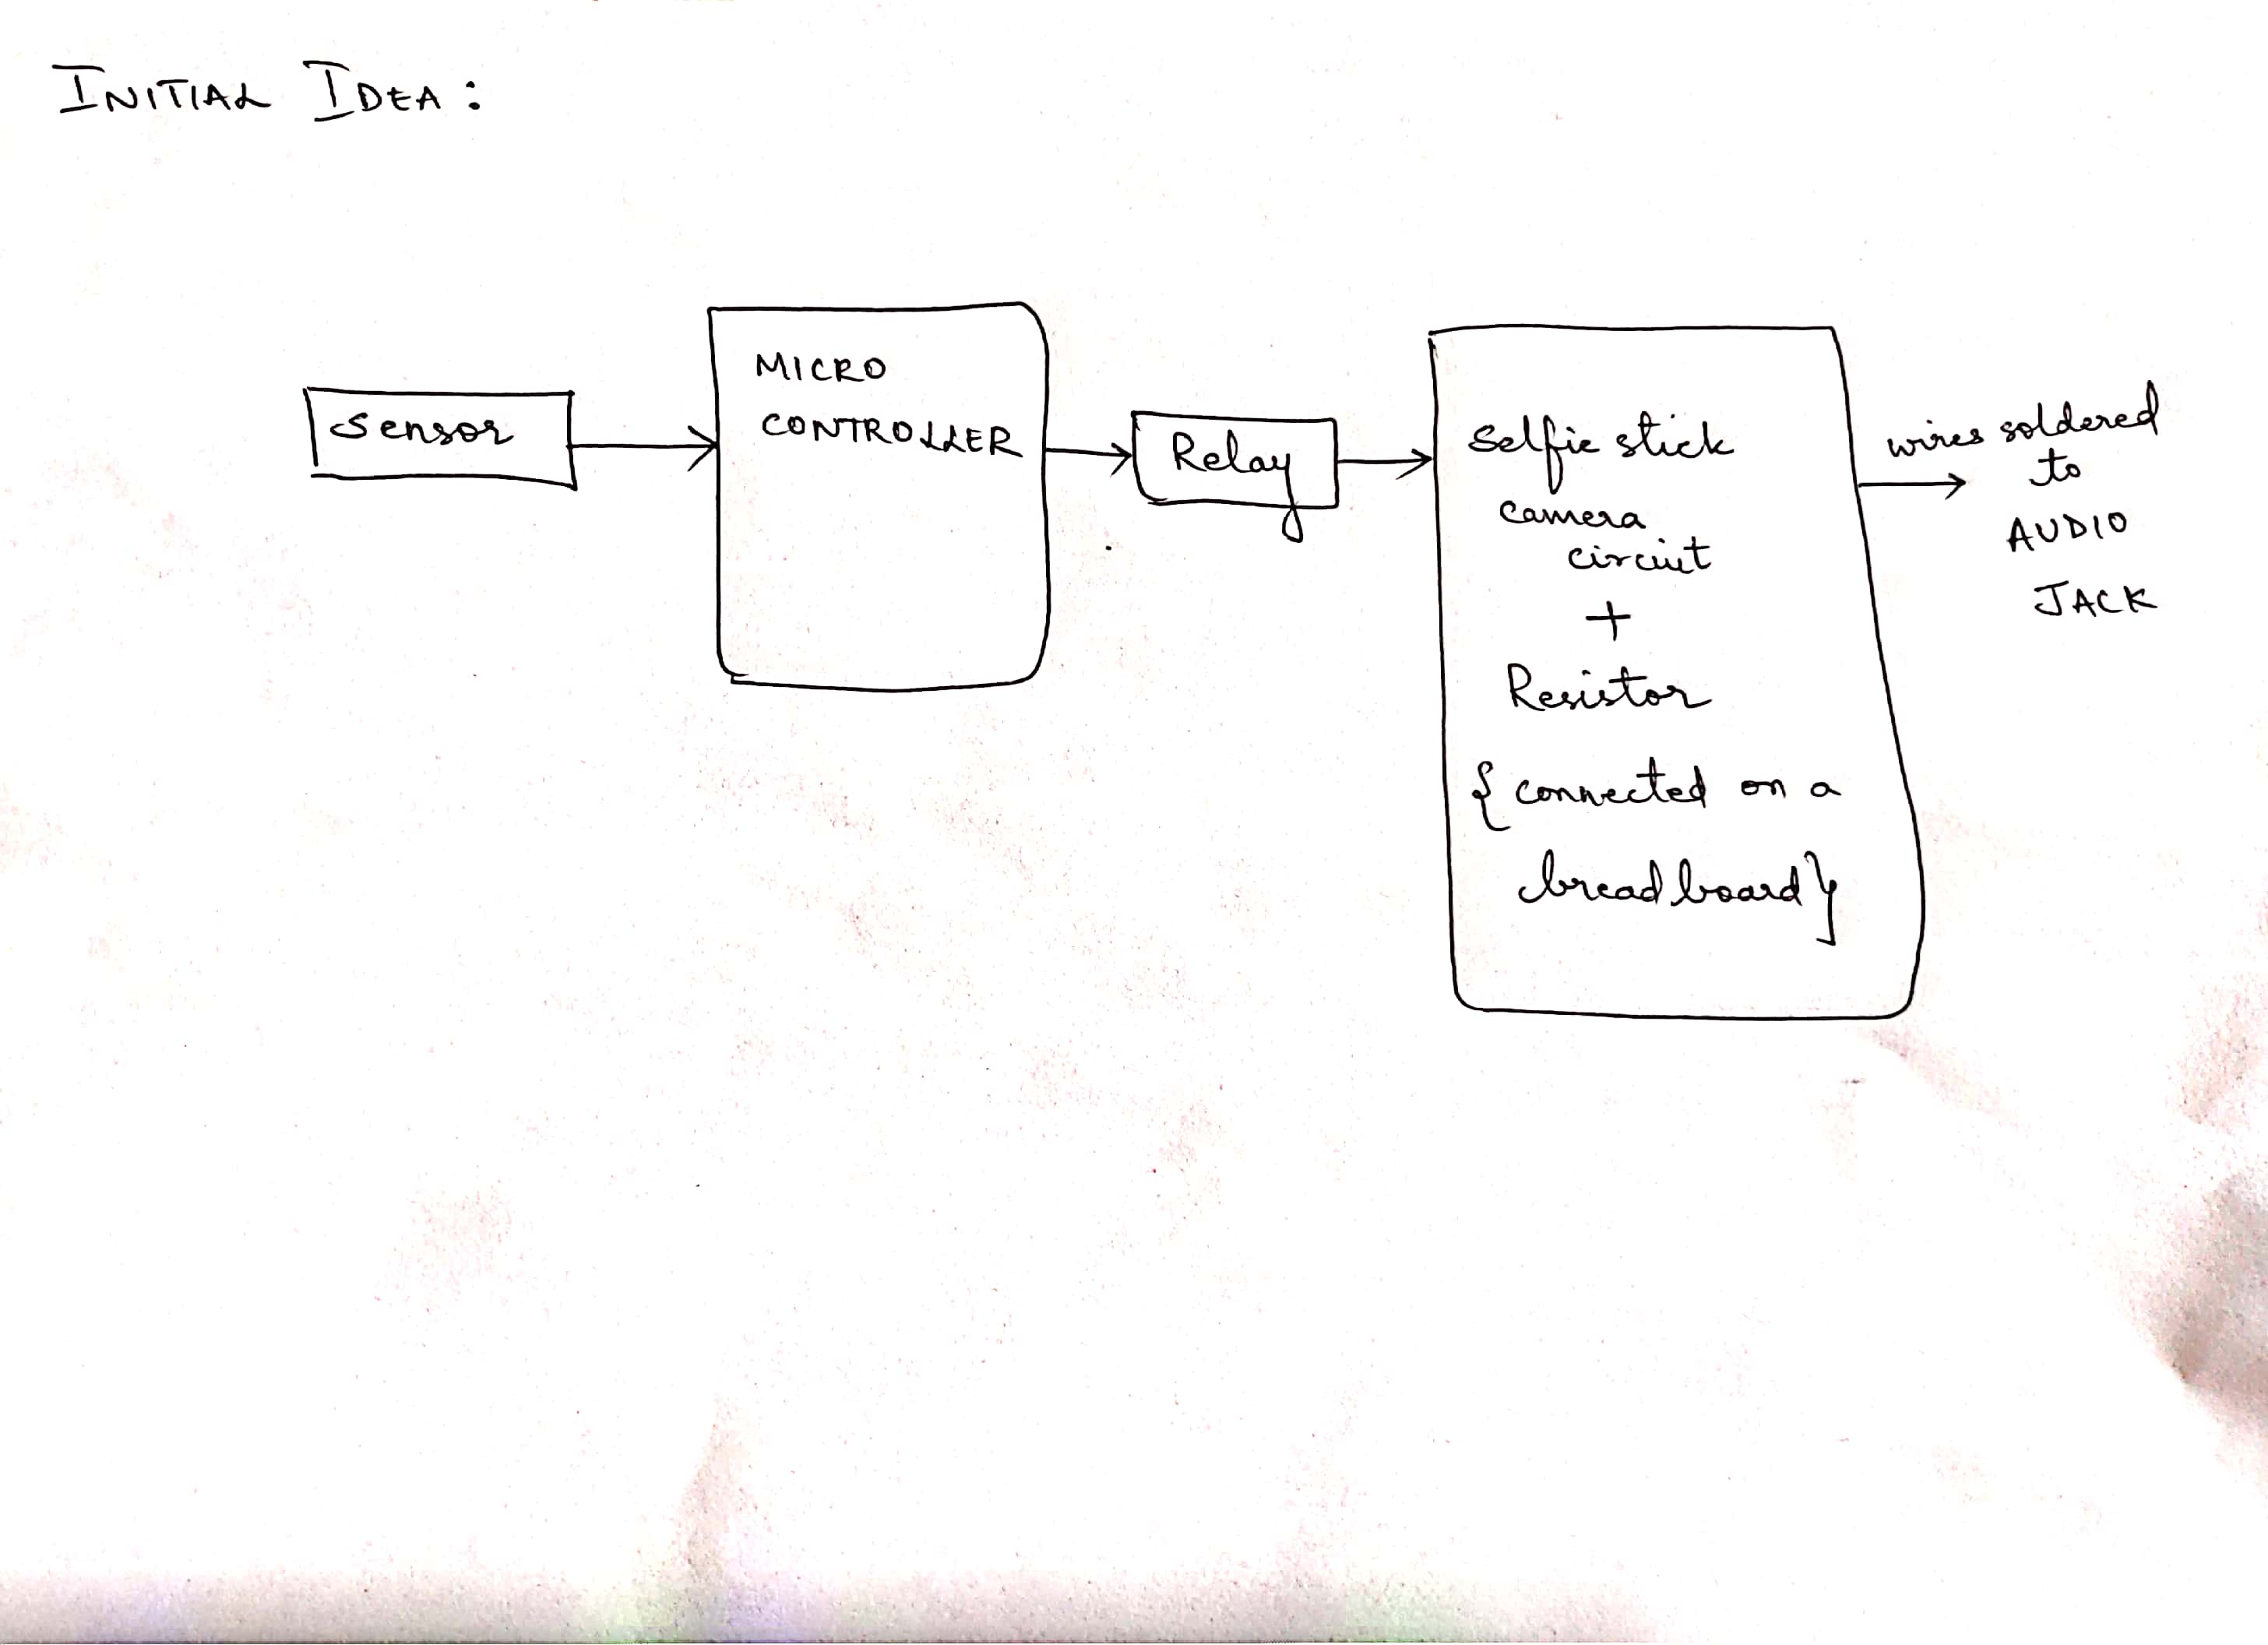 INITIAL IDEA:
Sensor
MICRO
CONTROLLER
Relay
Selfie stick
camera
circuit
+
Resistor
{connected on a
bread board}
wires soldered
to
AUDIO
JACK